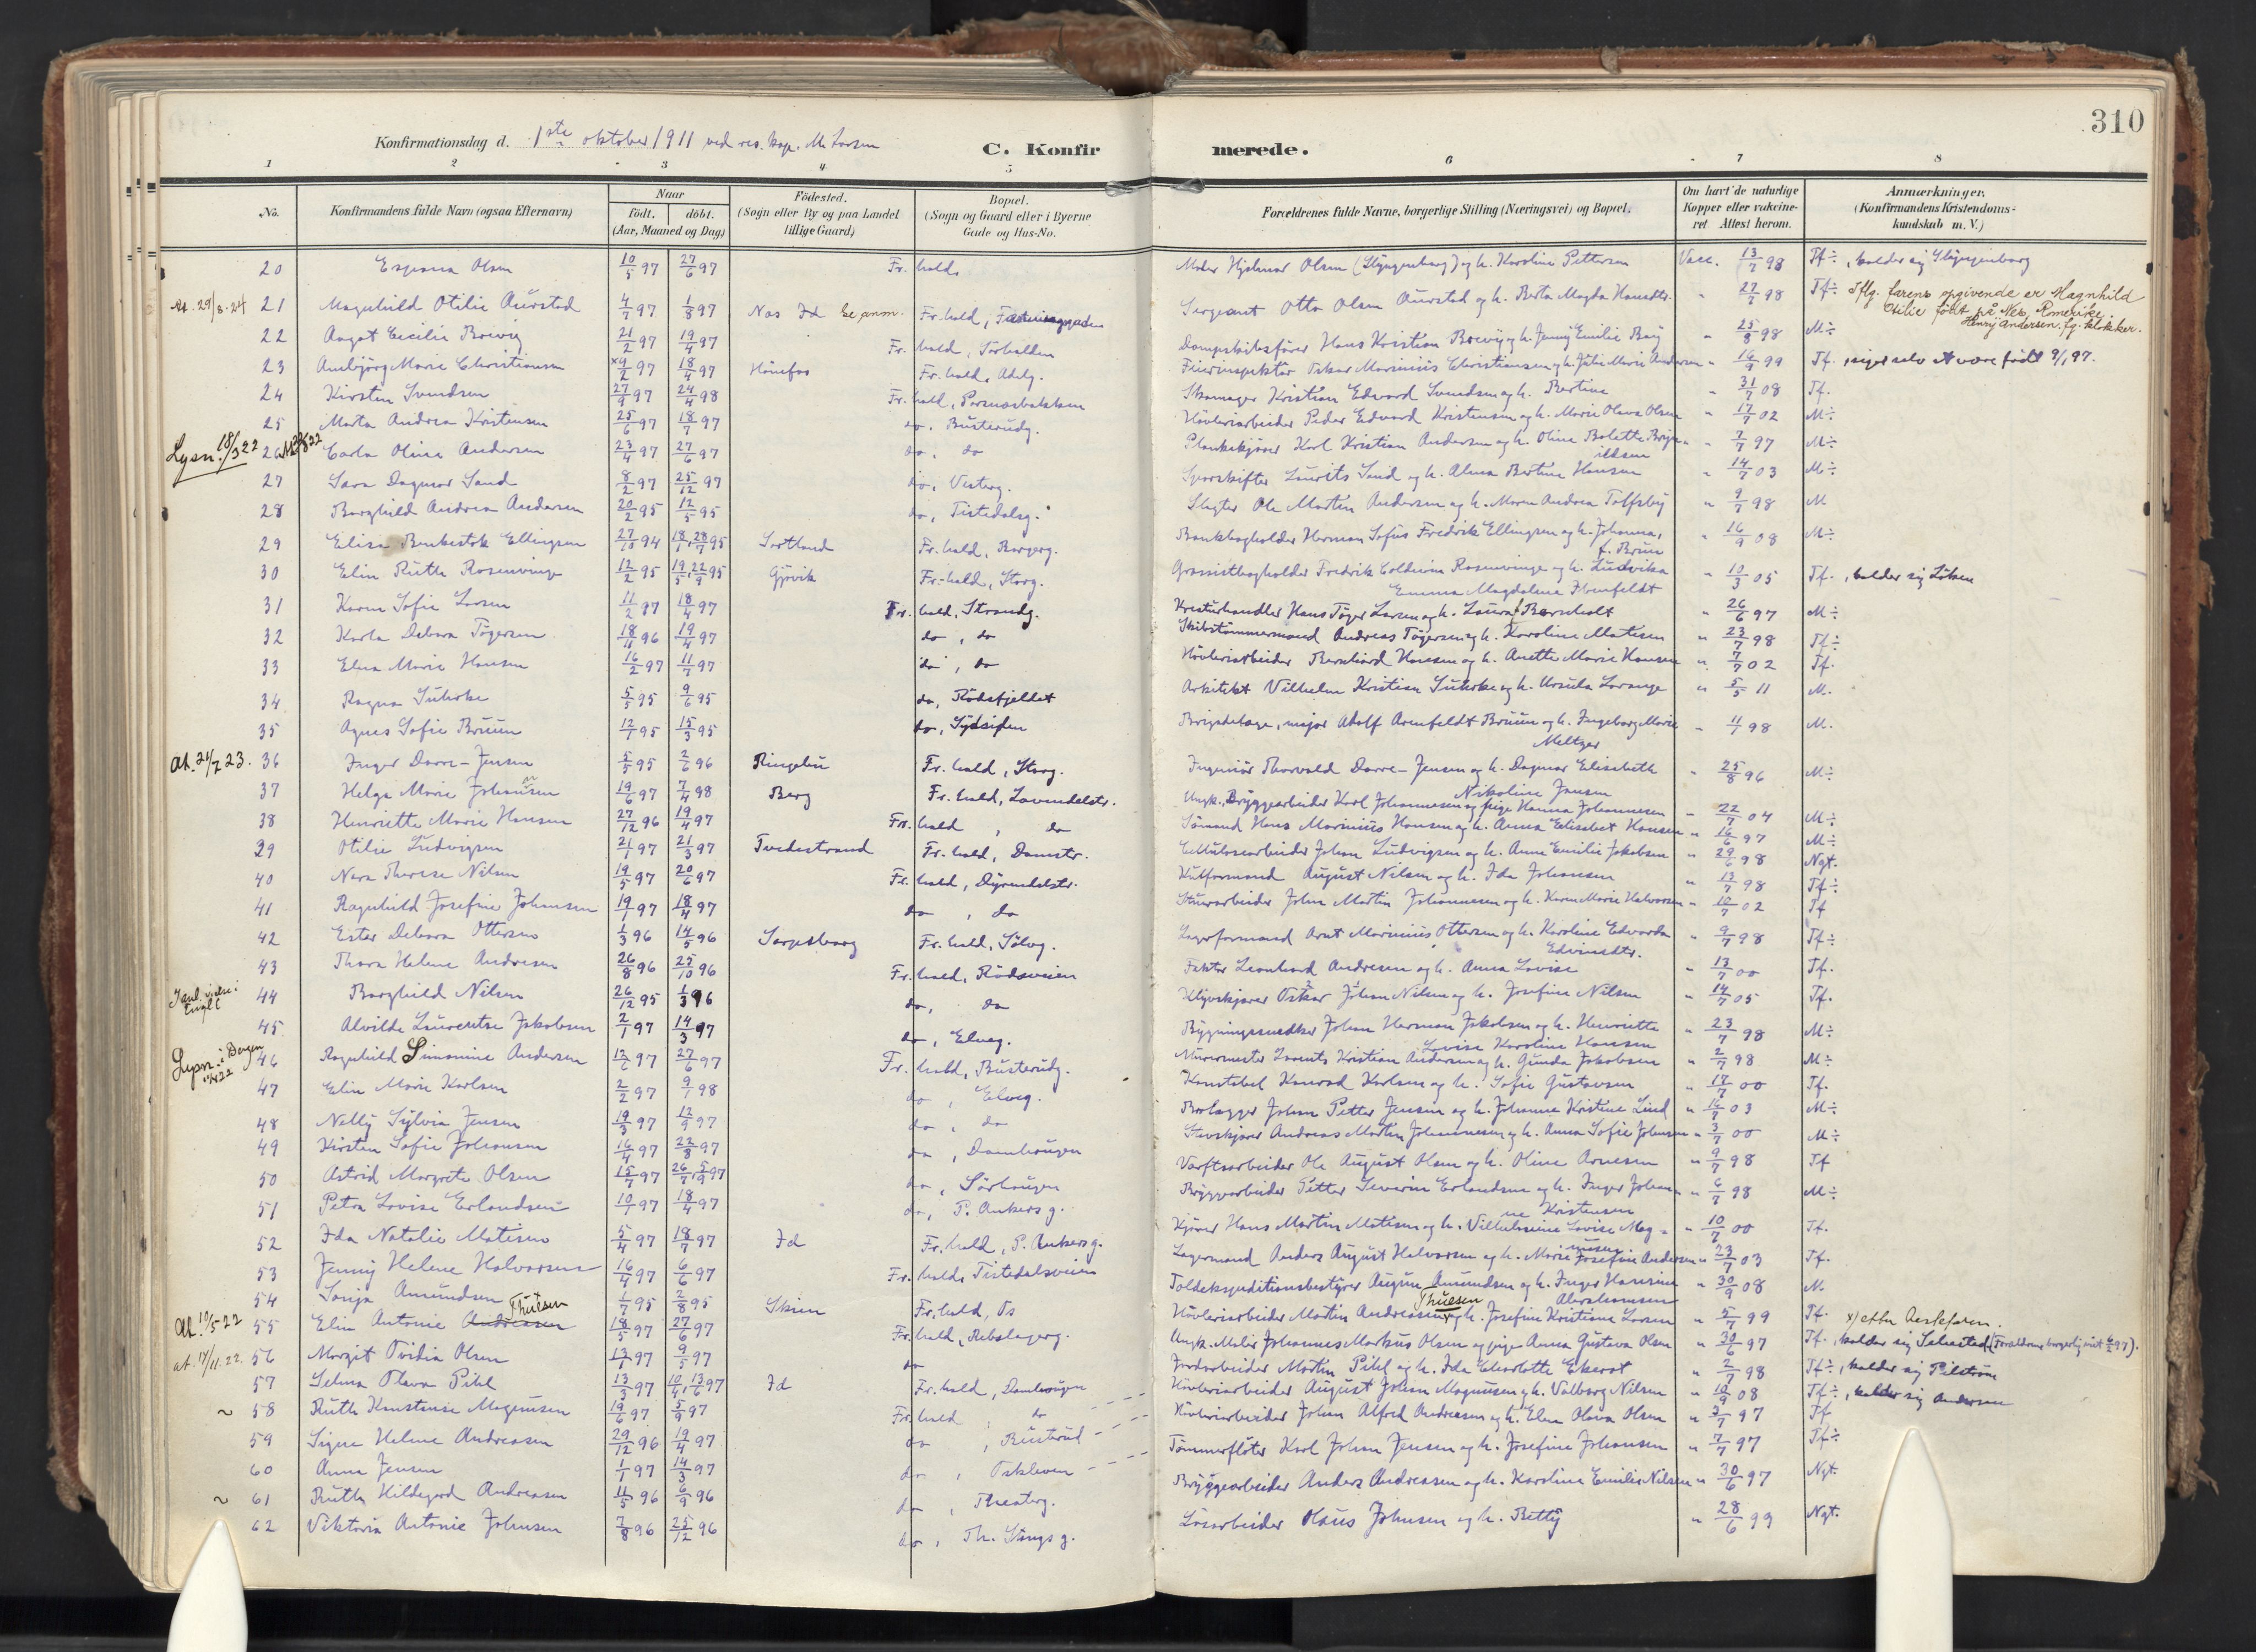 310
Konfirmationsdag d. 1ste oktober 1911 ved res. kap. M. Larsen
C. Konfirmerede.
1 2 3 4 5 6 7 8
No.
Konfirmandens fulde Navn (ogsaa Efternavn)
Naar
födt. döbt.
(Aar, Maaned og Dag)
Födested.
(Sogn eller By og paa Landet
tillige Gaard)
Bopæl.
(Sogn og Gaard eller i Byerne
Gade og Hus-No.
Forældrenes fulde Navne, borgerlige Stilling (Næringsvei) og Bopæl.
Om havt de naturlige
Kopper eller vakcine-
ret Attest herom.
Anmærkninger.
(Konfirmandens Kristendoms-
kundskab m. V.)
20 Olsen 10/5 97 27/6 97 Fr.hald. Hjelmar Olsen og h. Karoline Pettersen Vacc. 13/7 98 Tf÷, kalder sig
21 Magnhild Otilie Aurstad 4/7 97 1/8 97 Nas Id Se anm. Fr.hald, Sergeant Otto Olsen Aurstad og h. Berta Magda Hansdtr. " 27/7 98 Tf÷ Iflg. farens opgivende er Magnhild
Otilie født på Nes, Romerike.
Henry Andersen, fg. klokker.
22 Aagot Cecilie Brevig 21/2 97 19/4 97 Fr.hald, Dampskibsfører Hans Kristian Brevig og h. Jenny Emilie " 25/8 98 M÷
23 Marie Christiansen x9/2 97 18/4 97 Hönefos Fr.hald, Oskar Marinius Christiansen og h. Julie Marie Andersen " 16/9 99 Tf. siger selv at være født 9/1 97.
24 Kirsten Svendsen 27/9 97 24/4 98 Fr.hald, Skomager Kristian Edvard Svendsen og h. Bertine " 31/7 08 Tf.
25 Marta Andrea Kristensen 25/6 97 18/7 97 do, Busterudg. Høvleriarbeider Peder Edvard Kristensen og h. Marie Olava Olsen " 17/7 02 M÷
Lysn. 18/3 22
26 Carla Oline Andersen 23/4 97 27/6 97 do, do Plankekjører Karl Kristian Andersen og h. Oline Bolette " 7/7 97 M÷
27 Sara Dagmar Sand 8/2 97 25/12 97 do, Vesterg. Sporskifter Laurits Sand og h. Alma Bertine Hansen " 14/7 03 M÷
28 Borghild Andrea Andersen 20/2 95 12/5 95 do, Tistedalsg. Slagter Ole Martin Andersen og h. Maren Andrea Tolfsby " 9/7 98 M
29 Elisa Benkestok Ellingsen 27/10 94 18/1, 28/7 95 Sortland Fr.hald, Borgerg. Bankbogholder Herman Sofus Fredrik Ellingsen og h. Johanna,
f. Bruun " 16/9 08 M÷
30 Elin Ruth Rosenvinge 12/2 95 19/5, 22/9 95 Gjøvik Fr.hald, Storg. Grossistbogholder Fredrik Rosenvinge og h. Ludvika
Emma Magdalene " 10/3 05 Tf., kalder sig Löken
31 Karen Sofie Larsen 11/2 97 18/4 97 Fr.hald, Strandg. Hans Töger Larsen og h. Laura f Bernholt " 26/6 97 M÷
32 Karla Debora Tögersen 18/11 96 19/4 97 do, do Skibstömmermand Andreas Tögersen og h. Karoline Matisen " 23/7 98 Tf÷
33 Elna Marie Hansen 16/2 97 11/7 97 do, do Høvleriarbeider Bernhard Hansen og h. Anette Marie Hansen " 7/7 02 Tf.
34 Ragna Suhrke 5/5 95 9/6 95 do, Rödsfjellet Arkitekt Vilhelm Kristian Suhrke og h. Ursula Lorange " 5/5 11 M.
35 Agnes Sofie Bruun 12/1 95 15/3 95 do, Sydsiden Brigadelæge, major Adolf Arenfeldt Bruun og h. Ingeborg Marie
Meltzer " 11/7 98 M.
At. 21/7 23.
36 Inger Darre-Jensen 5/5 95 2/6 96 Ringebu Fr.hald, Storg. Ingeniør Thorvald Darre-Jensen og h. Dagmar Elisabeth
Nikoline Jensen " 25/8 96 M÷
37 Helga Marie Johansen 19/6 97 7/4 98 Berg Fr.hald, Lavendelstr. Ungk. Bryggearbeider Karl Johannesen og pige Hanna Johannesen " 22/7 04 M÷
38 Henriette Marie Hansen 27/12 96 19/4 97 Fr.hald, do Sömand Hans Marinius Hansen og h. Anna Elisabet Hansen " 16/6 97 M÷
39 Otilie Ludvigsen 21/1 97 21/3 97 Tvedestrand Fr.hald, Damstr. Cellulosearbeider Johan Ludvigsen og h. Anne Emilie Jakobsen " 29/6 98 Ngt.
40 Nora Therese Nilsen 19/5 97 20/6 97 Fr.hald, Dyrendalstr. Kulformand August Nilsen og h. Ida Johansen " 13/7 98 Tf÷
41 Ragnhild Josefine Johansen 19/1 97 18/4 97 do, do Stuerarbeider John Martin Johannesen og h. Karen Marie Halvorsen " 10/7 02 Tf
42 Ester Debora Ottersen 1/3 96 14/5 96 Sarpsborg Fr.hald, Sölvg. Lagerformand Arnt Marinius Ottersen og h. Karoline Edvarda
Edvinsdtr. " 9/7 98 Tf÷
43 Thora Helene Andresen 26/8 96 25/10 96 Fr.hald, Rødsveien Faktor Leonhard Andresen og h. Anna Lovise " 13/7 00 Tf.
44 Borghild Nilsen 26/12 95 1/3 96 do, do Oskar Johan Nilsen og h. Josefine Nilsen " 14/7 05 Tf.
45 Alvilde Laurentse Jakobsen 2/1 97 14/3 97 do, Elveg. Bygningssnedker Johan Herman Jakobsen og h. Henriette
Lovise Karoline Hansen " 23/7 98 M÷
Lysn. i Bergen
46 Ragnhild Simonine Andersen 27/6 97 Fr.hald, Busterudg. Murermester Laurits Kristian Andersen og h. Gunda Jakobsen " 2/7 98 M÷
47 Elin Marie Karlsen 2/2 97 9/1 98 do, Elveg. Konstabel Konrad Karlsen og h. Sofie Gustavsen " 18/7 00 Tf.
48 Nelly Sylvia Jensen 19/3 97 12/9 97 do, do Brolægger Johan Petter Jensen og h. Johanne Kristine Lind " 16/7 03 M÷
49 Kirsten Sofie Johansen 16/4 97 22/8 97 do, Damhaugen Andreas Martin Johannesen og h. Anna Sofie Johnsen " 3/7 00 M÷
50 Astrid Margrete Olsen 15/7 97 do, Sörhaugen Værftsarbeider Ole August Olsen og h. Oline Arnesen " 9/7 98 Tf
51 Petra Lovise Erlandsen 10/1 97 18/4 97 do, P. Ankers g. Bryggearbeider Petter Severin Erlandsen og h. Inger Johan-
ne Kristensen " 6/7 98 M÷
52 Ida Natalie Matisen 5/4 97 18/7 97 Id Fr.hald, P. Ankersg. Kjører Hans Martin Matisen og h. Vilhelmine Lovise Mag-
nusen " 10/7 00 Tf.
53 Jenny Helene Halvorsen 16/4 97 6/6 97 Fr.hald, Tistedalsveien Lagermand Anders August Halvorsen og h. Marie Josefine Andersen " 23/7 03 Tf.
54 Sonja Amundsen 1/7 95 2/8 95 Skien Fr.hald, Os Toldekspeditionsbestyrer August Amundsen og h. Inger Hansine
Abrahamsen " 30/9 08 M.
At. 10/5 22
55 Elin Antonie Andreasen Thuesen 18/5 97 27/6 97 Fr.hald, Rebslagerg. Høvleriarbeider Martin Andreasen Thuesen og h. Josefine Kristiane Larsen " 5/7 99 Tf. x) efter
at. 17/11.22.
56 Margit Ovidia Olsen 13/1 97 9/5 97 do Ungk. Maler Johannes Markus Olsen og pige Anna Gustava Olsen " 30/6 97 Tf., kalder sig
57 Selma Olava Pihl 13/3 97 10/4, 13/6 97 Id Fr.hald, Damhaugen Jordarbeider Martin Pihl og h. Ida Charlotte Ekerot " 2/7 98 Tf÷, kalder sig Pilström
~ 58 Ruth Konstanse Magnusen 19/6 97 5/9 97 Fr.hald, do Høvleriarbeider August Johan Magnusen og h. Valborg Nilsen " 10/9 08 Tf÷, kalder sig Andersen
59 Signe Helene Andreasen 29/12 96 19/4 97 do, Busterud Høvleriarbeider Johan Alfred Andreasen og h. Elen Olava Olsen " 3/7 97 Tf
60 Anna Jensen 1/1 97 14/3 97 do, Oskleven Tømmerfløter Karl Johan Jensen og h. Josefine Johansen " 7/7 97 Tf÷
~ 61 Ruth Hildegard Andreasen 11/5 96 6/9 96 do, Theaterg. Bryggearbeider Anders Andreasen og h. Karoline Emilie Nilsen " 30/6 97 Ngt.
62 Viktoria Antonie Johnsen 7/8 96 25/12 96 do, Th. Stangs g. Løsarbeider Olaus Johnsen og h. Betty " 28/6 99 Ngt.